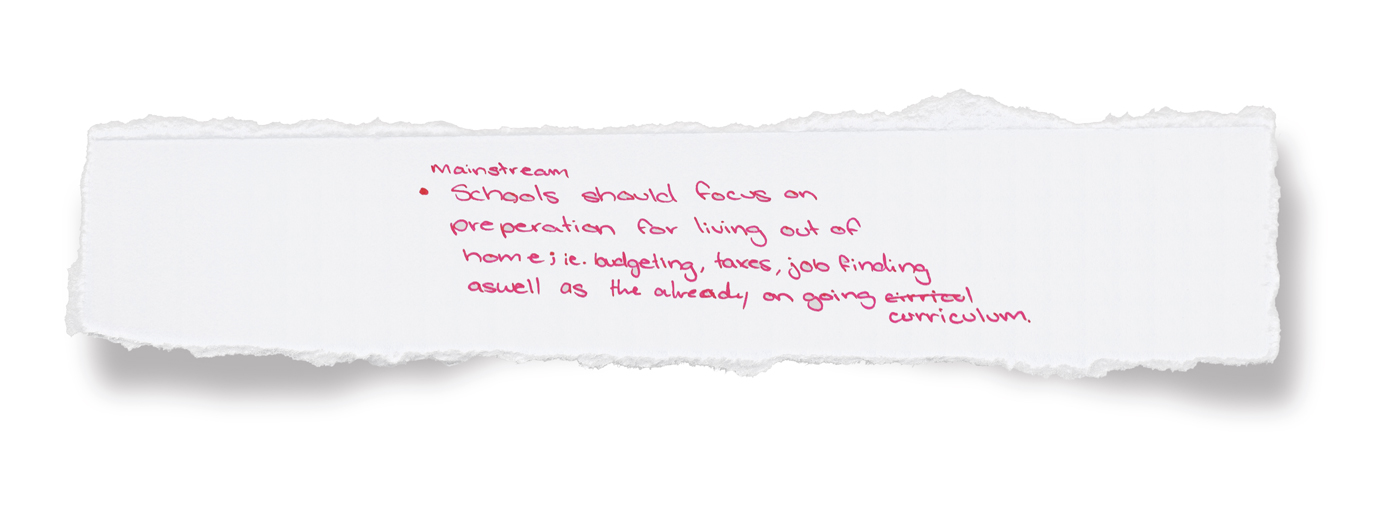 Mainstream
• Schools should focus on
preperation for living out of
home; ie. budgeting, taxes, job finding
aswell as the already on going
curriculum.